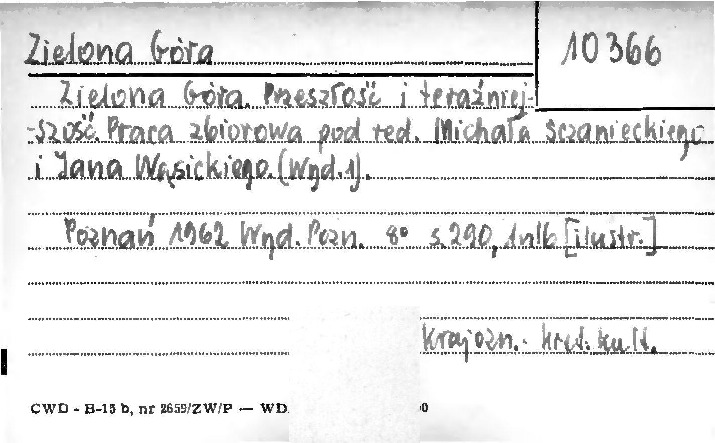 Zielona Góra
10366
Zielona Góra. Przeszłość i teraźniej-
-szość. Praca zbiorowa pod red. Michała Sczanieckiego
i Jana Wąsickiego. (Wyd. 1).
Poznań 1962 Wyd. Pozn. 8° s. 290, 1 nlb [ilustr.]
Krajozn.-
CWD - B-15 b, nr 2659/ZW/P — WD.